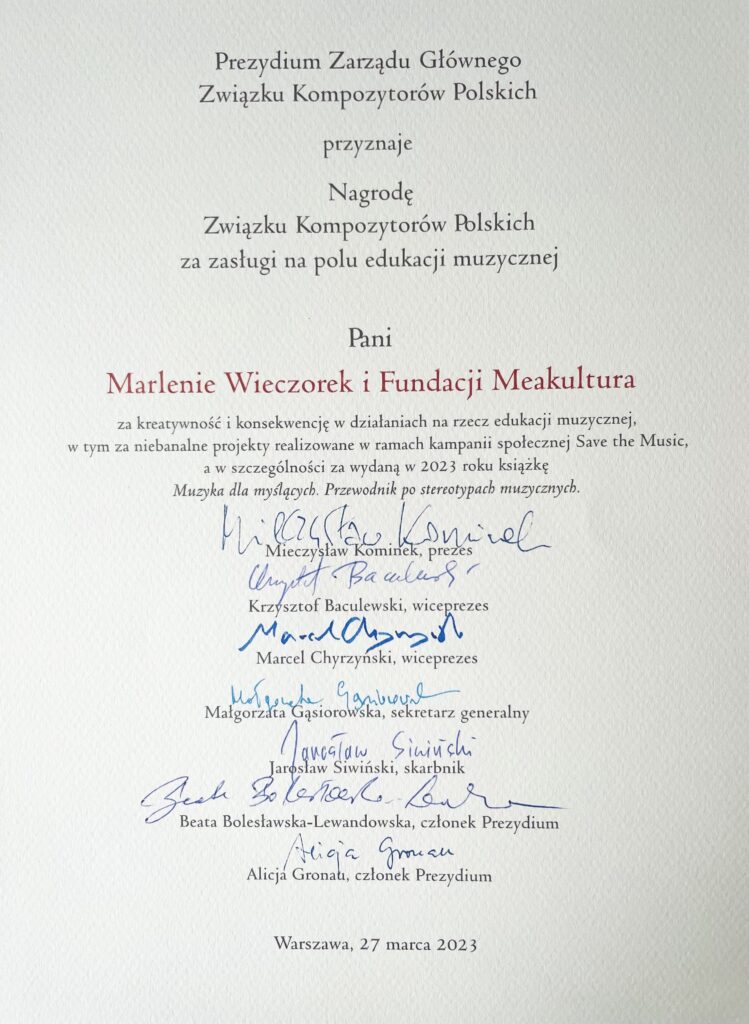 Prezydium Zarządu Głównego
Związku Kompozytorów Polskich
przyznaje
Nagrodę
Związku Kompozytorów Polskich
za zasługi na polu edukacji muzycznej
Pani
Marlenie Wieczorek i Fundacji Meakultura
za kreatywność i konsekwencję w działaniach na rzecz edukacji muzycznej,
w tym za niebanalne projekty realizowane w ramach kampanii społecznej Save the Music,
a w szczególności za wydaną w 2023 roku książkę
Muzyka dla myślących. Przewodnik po stereotypach muzycznych.
Mieczysław Kominek
Mieczysław Kominek, prezes
Krzysztof Baculewski
Krzysztof Baculewski, wiceprezes
Marcel Chyrzyński
Marcel Chyrzyński, wiceprezes
Małgorzata Gąsiorowska
Małgorzata Gąsiorowska, sekretarz generalny
Jarosław Siwiński
Jarosław Siwiński, skarbnik
Beata Bolesławska-Lewandowska, członek Prezydium
Alicja Gronau
Alicja Gronau, członek Prezydium
Warszawa, 27 marca 2023